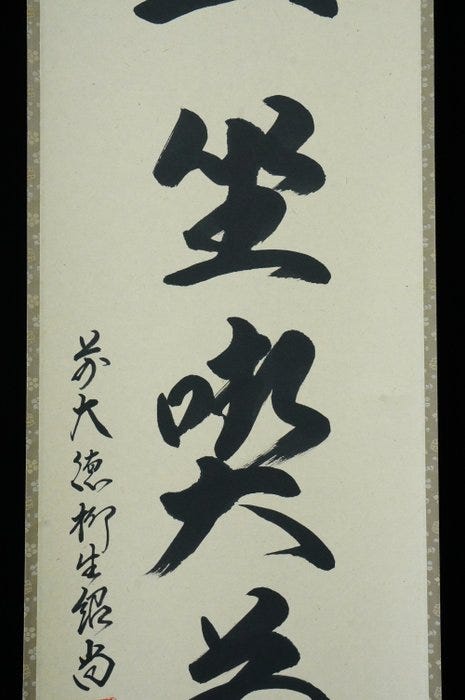 坐喫
前大徳柳生紹尚